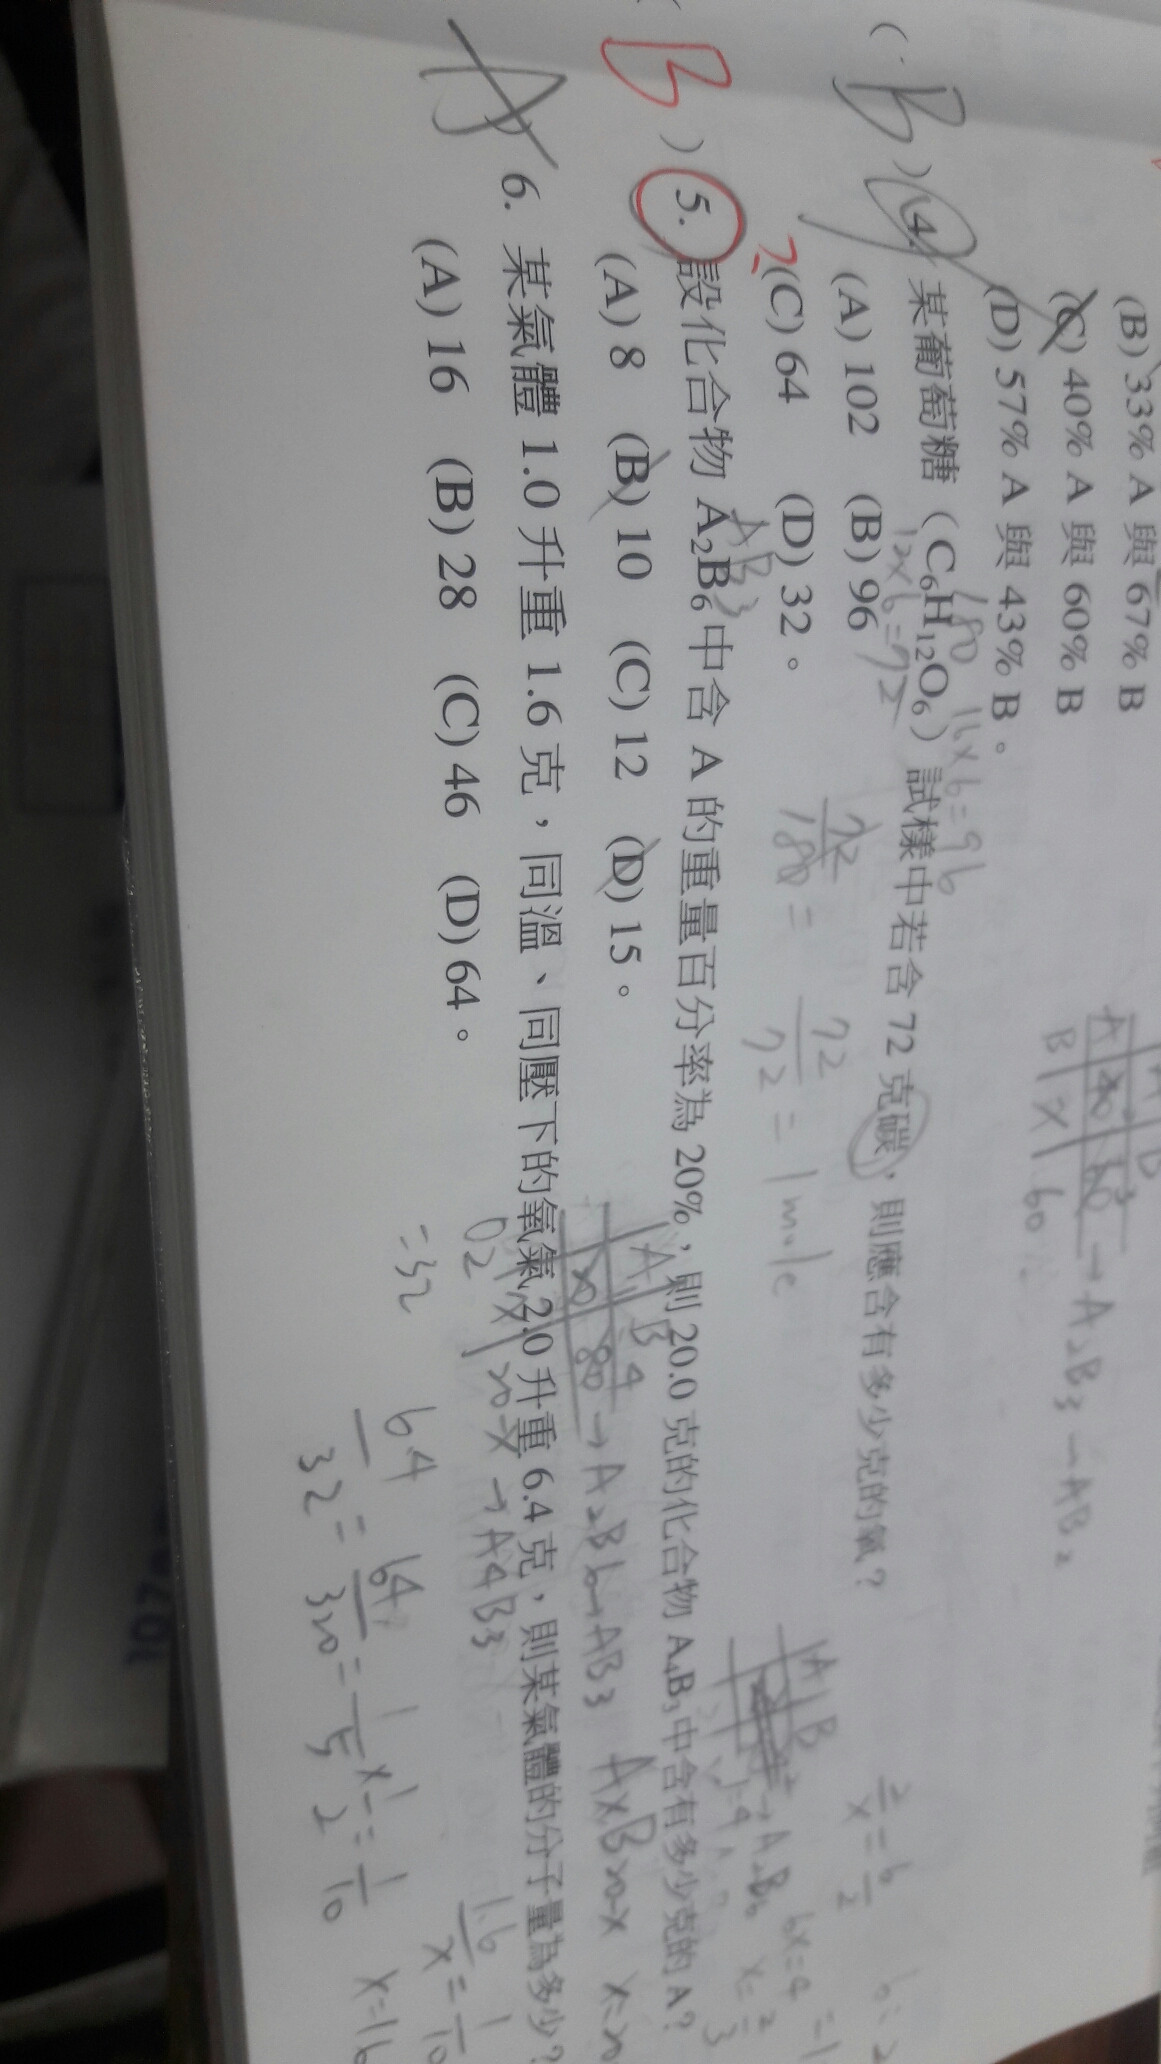 (B) 33% A 與 67% B
(C) 40% A 與 60% B
(D) 57% A 與 43% B。
( B ) 4. 某葡萄糖（C₆H₁₂O₆）試樣中若含 72 克碳，則應含有多少克的氧？
180
16×6=96
12×6=72
(A) 102 (B) 96
(C) 64 (D) 32。
72/180 =
72/72 = 1 mole
A B
→ A₂B₃ → AB₂
B ) 5. 設化合物 A₂B₆ 中含 A 的重量百分率為 20%，則 20.0 克的化合物 A₄B₃ 中含有多少克的 A？
AB₃
(A) 8 (B) 10 (C) 12 (D) 15。
A B
20 80 → A₂B₆ → AB₃
x 20-x → A₄B₃
A B
→ A₂B₆
6x=4
x=2/3
A 6. 某氣體 1.0 升重 1.6 克，同溫、同壓下的氧氣 2.0 升重 6.4 克，則某氣體的分子量為多少？
(A) 16 (B) 28 (C) 46 (D) 64。
O₂
=32
6.4/32 = 64/320 = 1/5 × 1/2 = 1/10
1.6/x = 1/10
x=16